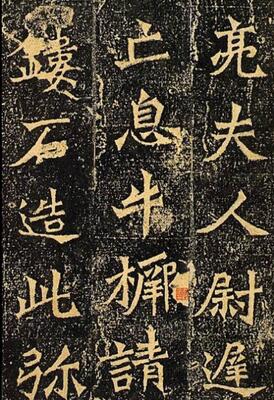 亮夫人尉遲
亡息牛橛請
鏤石造此弥